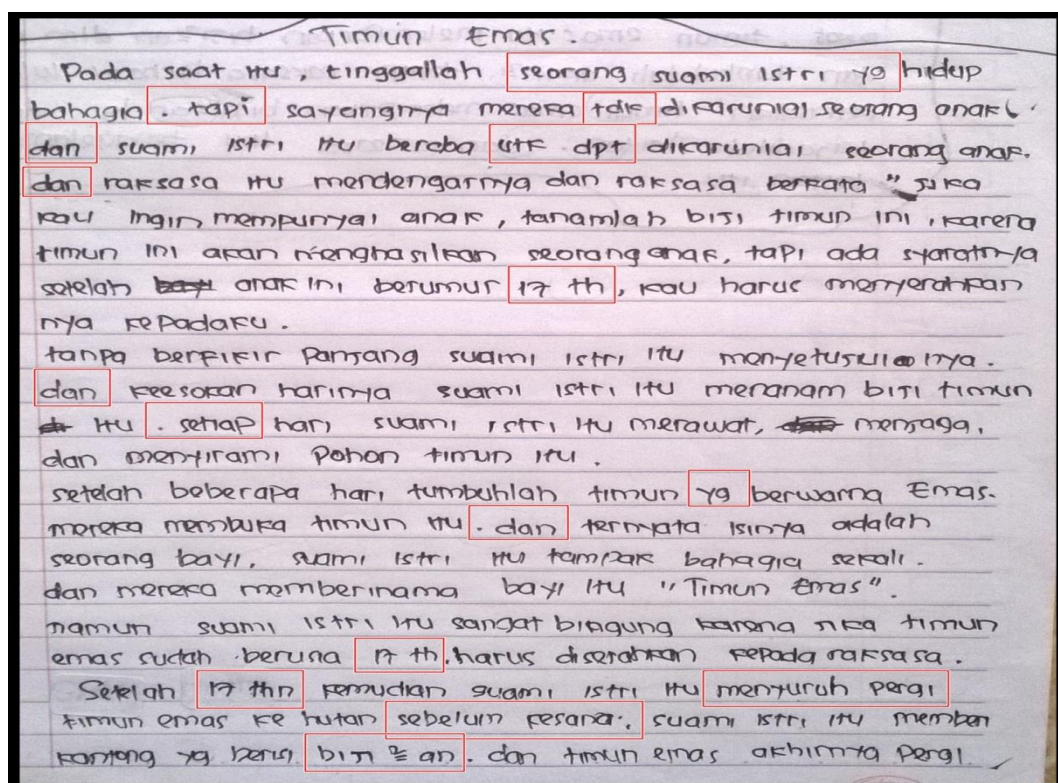 Timun Emas.
Pada saat itu, tinggallah seorang suami istri yg hidup
bahagia. tapi sayangnya mereka tdk dikaruniai seorang anak
dan suami istri itu beroba utk dpt dikaruniai seorang anak.
dan raksasa itu mendengarnya dan raksasa berkata " jika
kau ingin mempunyai anak, tanamlah biji timun ini, karena
timun ini akan menghasilkan seorang anak, tapi ada syaratnya
setelah anak ini berumur 17 th, kau harus menyerahkan
nya kepadaku.
tanpa berfikir panjang suami istri itu menyetujuinya.
dan keesokan harinya suami istri itu menanam biji timun
itu. setiap hari suami istri itu merawat, menjaga,
dan menyirami pohon timun itu.
setelah beberapa hari tumbuhlah timun yg berwarna Emas.
mereka membuka timun itu. dan ternyata isinya adalah
seorang bayi. suami istri itu tampak bahagia sekali.
dan mereka memberinama bayi itu "Timun Emas".
namun suami istri itu sangat bingung karena jika timun
emas sudah berusia 17 th. harus diserahkan kepada raksasa.
Setelah 17 thn kemudian suami istri itu menyuruh pergi
timun emas ke hutan sebelum kesana. suami istri itu memberi
kantong yg berisi biji ² an. dan timun emas akhirnya pergi